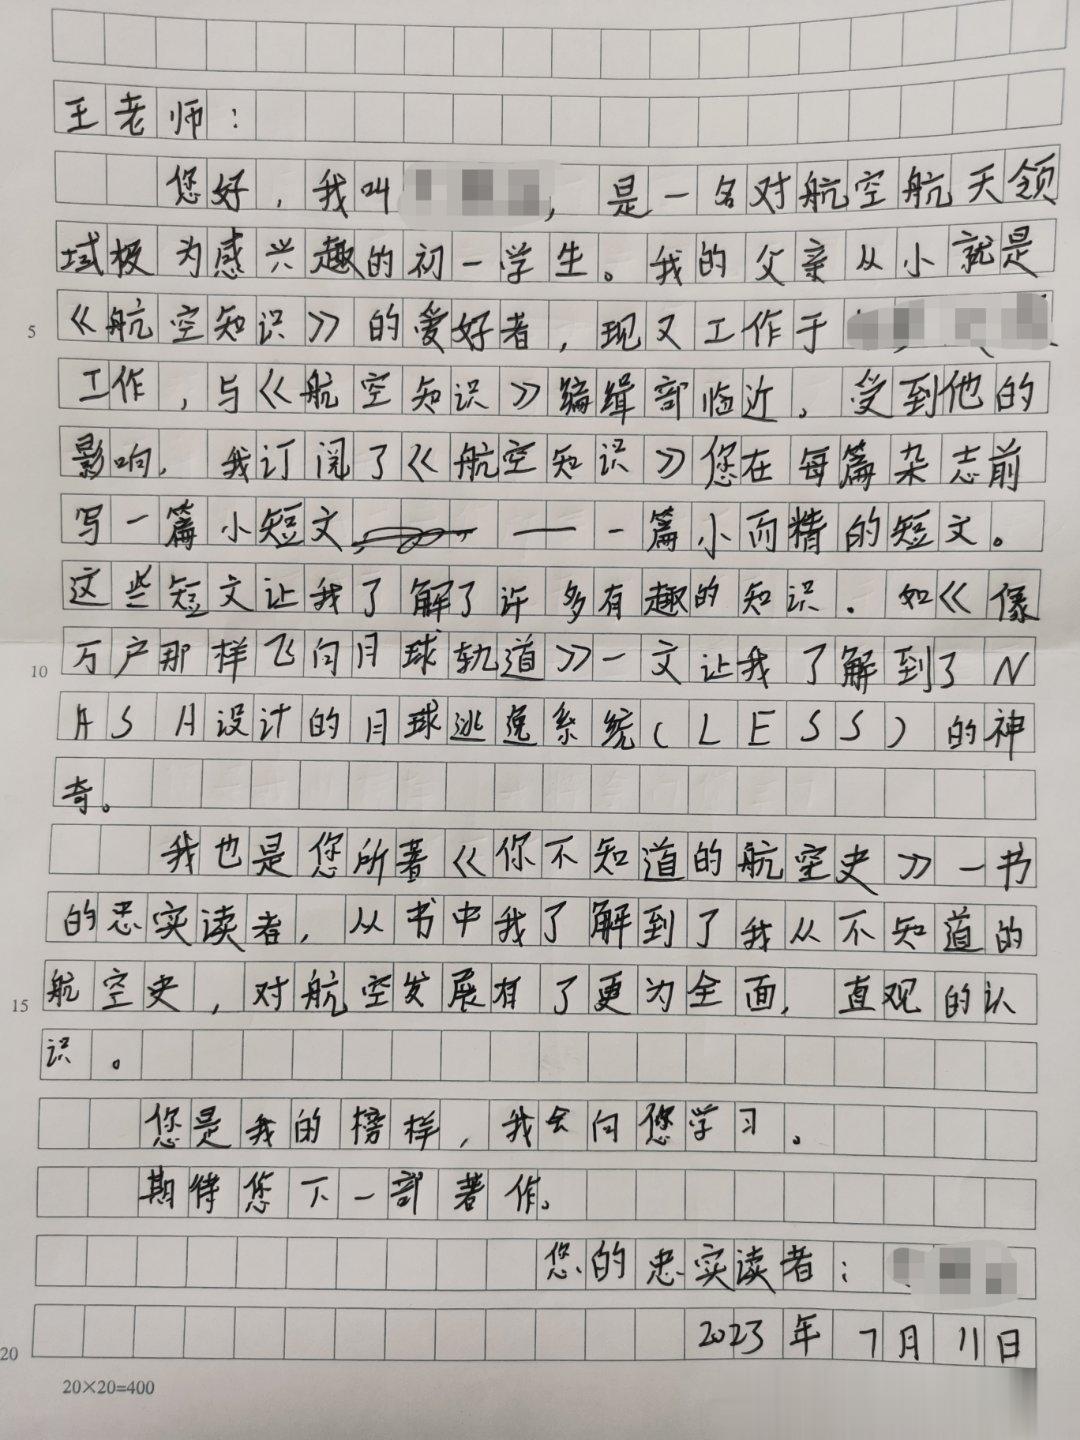 王老师：
您好，我叫，是一名对航空航天领
域极为感兴趣的初一学生。我的父亲从小就是
5 《航空知识》的爱好者，现又工作于
工作，与《航空知识》编辑部临近，受到他的
影响，我订阅了《航空知识》您在每篇杂志前
写一篇小短文，——一篇小而精的短文。
这些短文让我了解了许多有趣的知识．如《像
10 万户那样飞向月球轨道》一文让我了解到了N
ASA设计的月球逃逸系统（LESS）的神
奇。
我也是您所著《你不知道的航空史》一书
的忠实读者，从书中我了解到了我从不知道的
15 航空史，对航空发展有了更为全面，直观的认
识。
您是我的榜样，我会向您学习。
期待您下一部著作。
您的忠实读者：
2023年7月11日
20
20×20=400